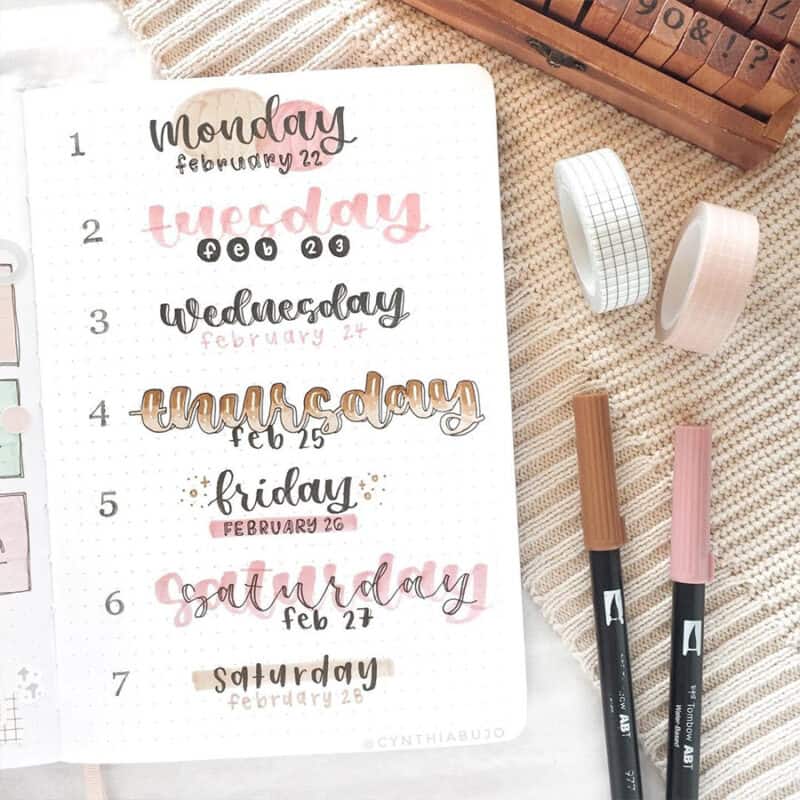 1 monday
february 22
2 tuesday
feb 23
3 wednesday
february 24
4 thursday
feb 25
5 friday
FEBRUARY 26
6 saturday
feb 27
7 saturday
february 28
@CYNTHIABUJO
90&!?
Tombow ABT
Water-Based
ABT
977